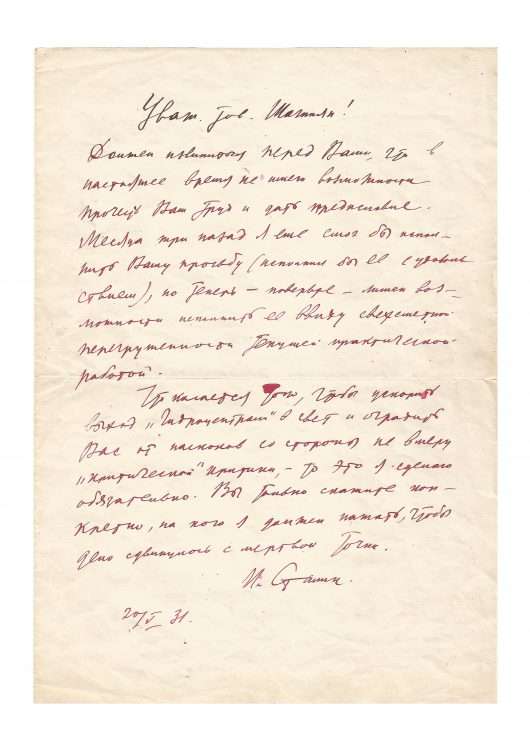 Уваж. тов. Шагинян!
Должен извиниться перед Вами, что в
настоящее время не имею возможности
прочесть Ваш труд и дать предисловие.
Месяца три назад я еще смог бы испол-
нить Вашу просьбу (исполнил бы ее с удоволь-
ствием), но теперь – поверьте – лишен воз-
можности исполнить ее ввиду сверхсметной
перегруженности текущей практической
работой.
Что касается того, чтобы ускорить
выход „Гидроцентрали" в свет и оградить
Вас от наскоков со стороны не в меру
„критической" критики, – то это я сделаю
обязательно. Вы только скажите кон-
кретно, на кого я должен нажать, чтобы
дело сдвинулось с мертвой точки.
И. Сталин.
20/V 31.